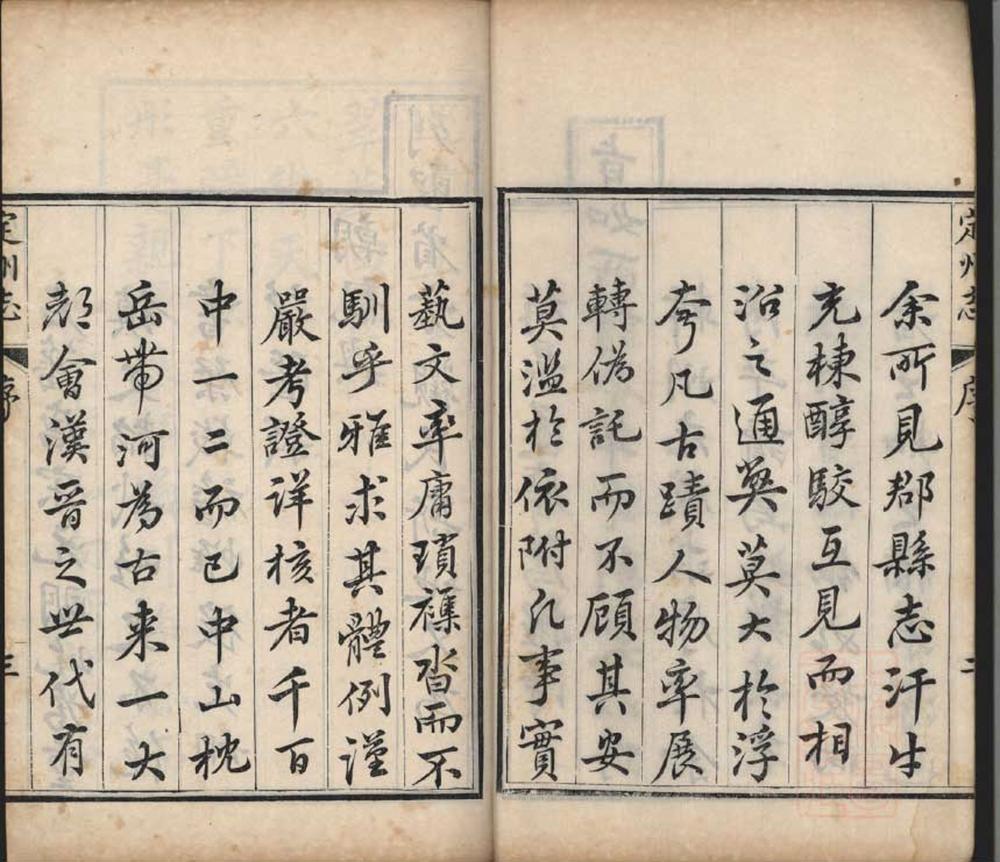 定州志
序
二
余所見郡縣志汗牛
充棟醇駮互見而相
沿之通獘莫大於浮
夸凡古蹟人物率展
轉偽託而不顧其安
莫濫於依附凡事實
藝文率庸瑣襍沓而不
馴乎雅求其體例謹
嚴考證詳核者千百
中一二而已中山枕
岳帶河為古来一大
都會漢晉之世代有
定州志
序
三